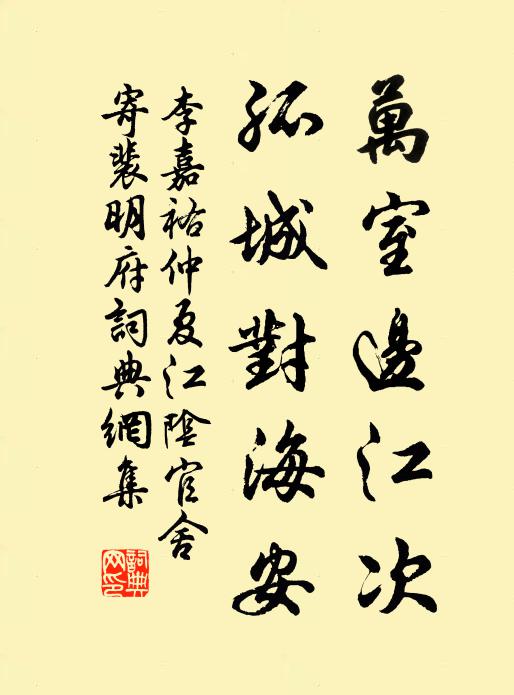 萬室邊江次
孤城對海安
李嘉祐仲夏江陰官舍
寄裴明府詞典網集
詞典網印